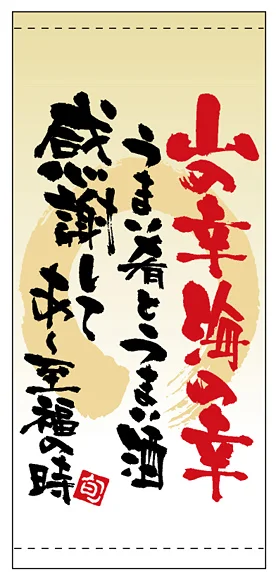 山の幸海の幸
うまい肴とうまい酒
感謝して
あ〜至福の時
旬